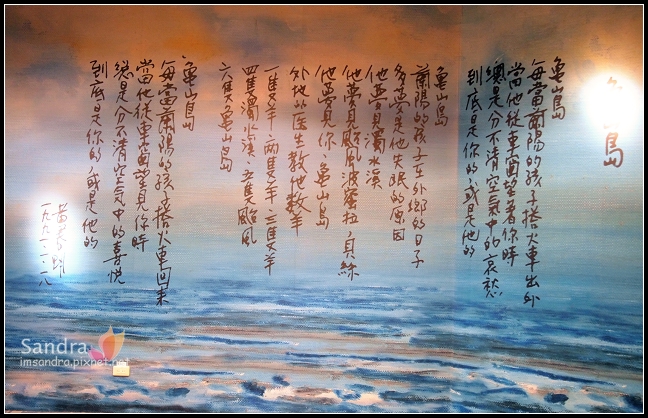 龜山島
龜山島
每當蘭陽的孩子搭火車出外
當他從車窗望著你時
總是分不清空氣中的哀愁
到底是你的,或是他的
龜山島
蘭陽的孩子在外鄉的日子
多夢是他失眠的原因
他夢見濁水溪
他夢見颱風波蜜拉,貝絲
他夢見你,龜山島
外地的医生教他数羊
一隻羊,兩隻羊,三隻羊
四隻濁水溪,五隻颱風
六隻龜山島
龜山島
每當蘭陽的孩子搭火車回來
當他從車窗望見你時
總是分不清空氣中的喜悅
到底是你的,或是他的
黃春明
Sandra
imsandra.pixnet.net